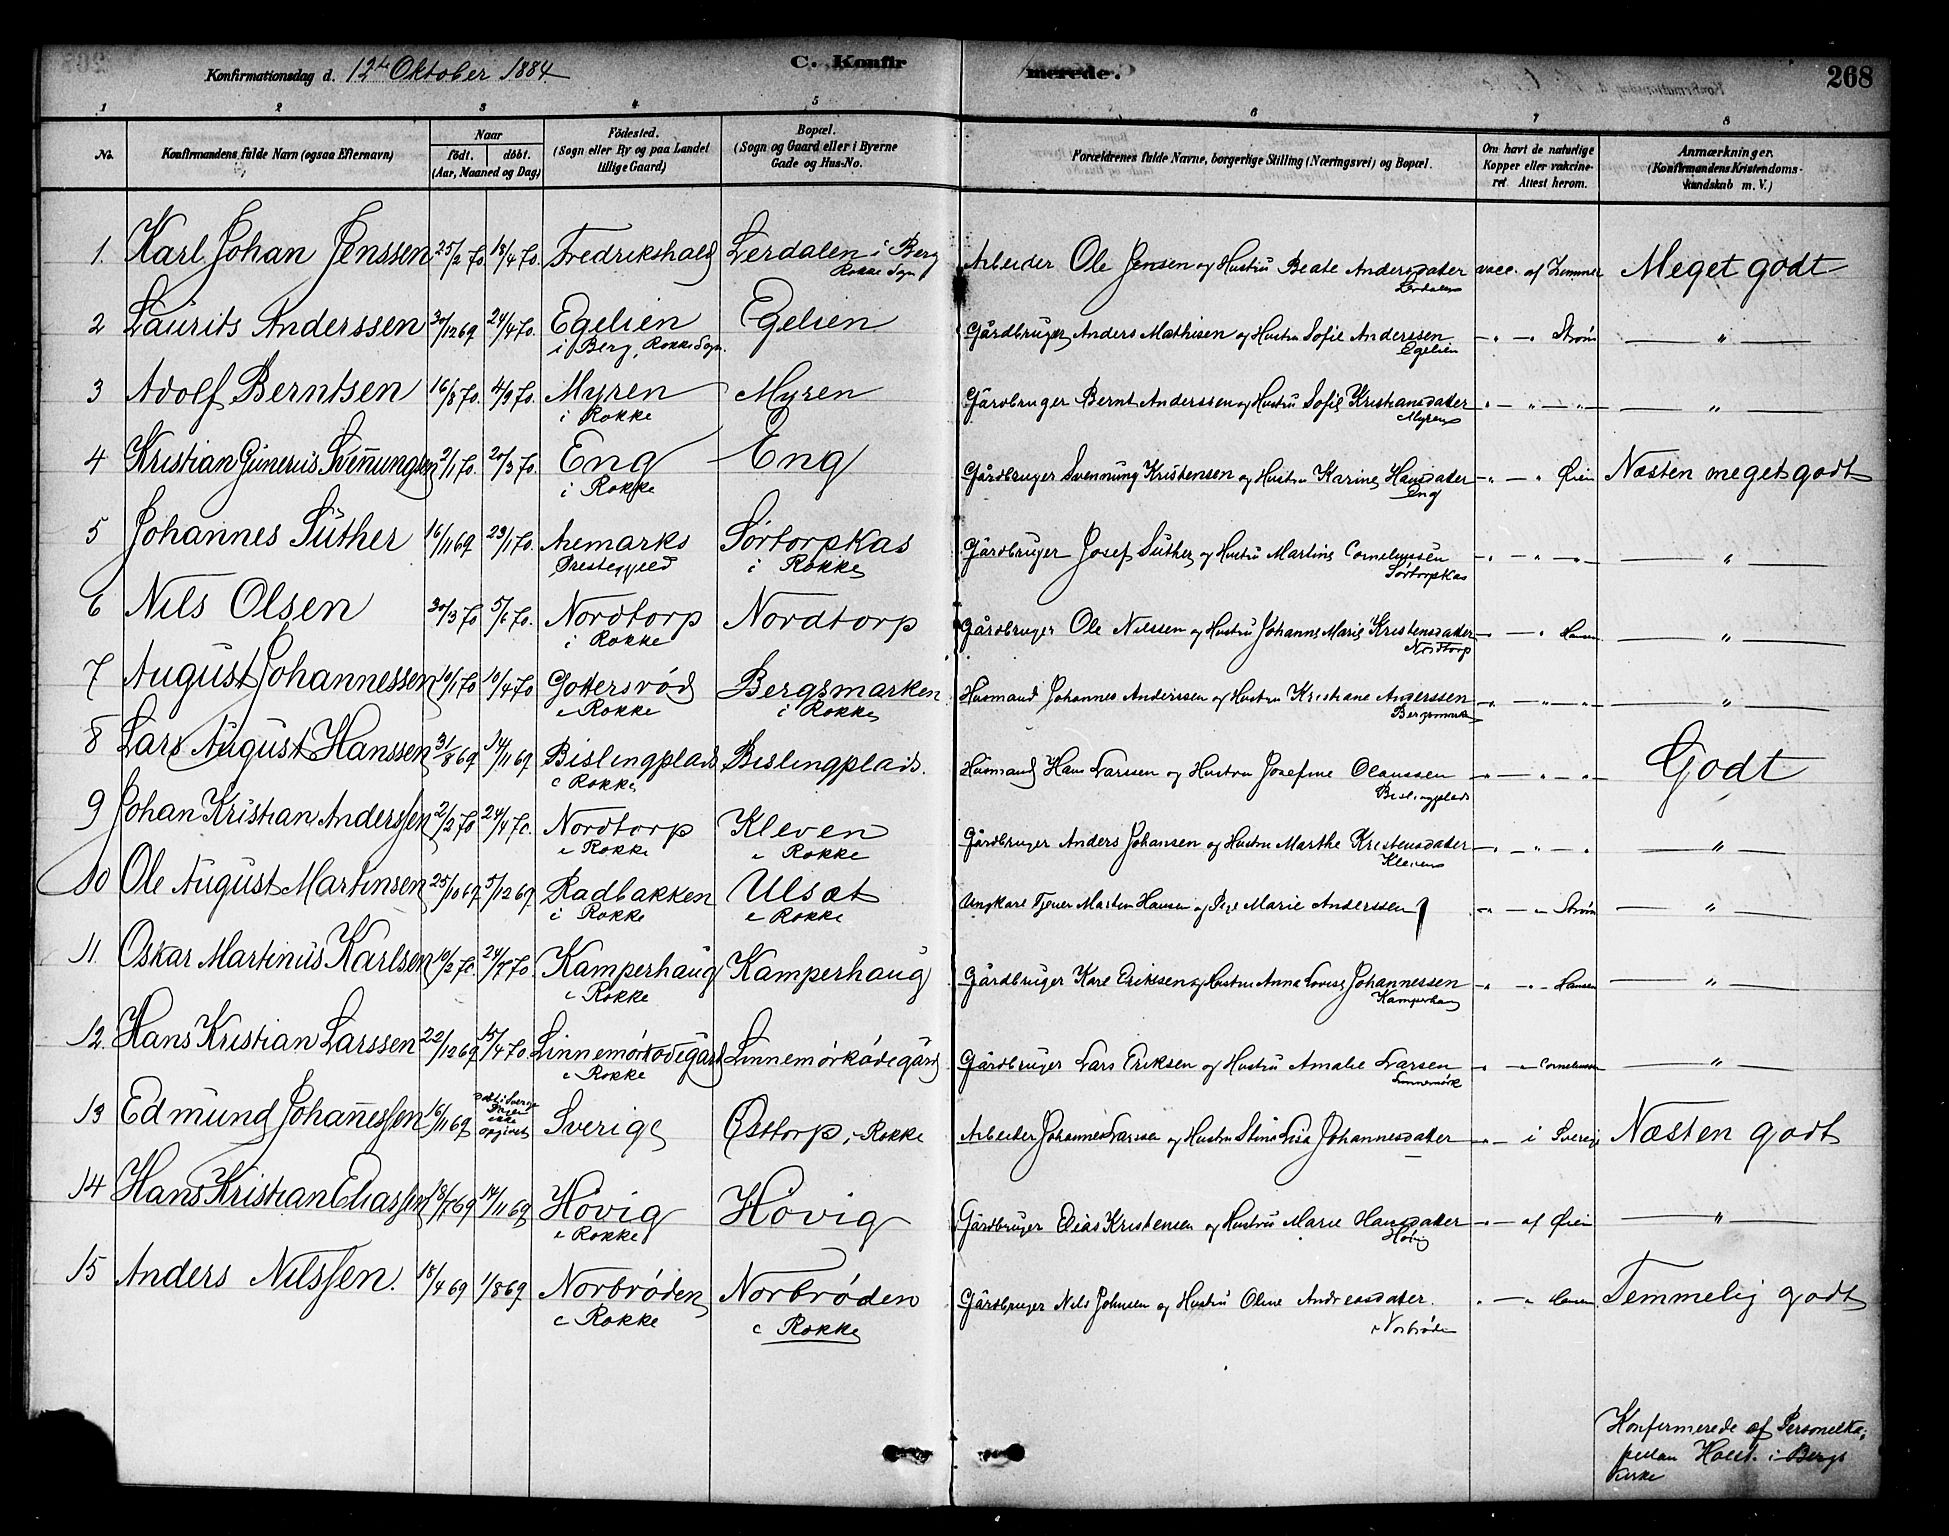 Konfirmationsdag d. 12te Oktober 1884
C. Konfirmerede. 268
1 2 3 4 5 6 7 8
No. Konfirmandens fulde Navn (ogsaa Efternavn) Naar födt. döbt. (Aar, Maaned og Dag) Födested. (Sogn eller By og paa Landet tillige Gaard) Bopæl. (Sogn og Gaard eller i Byerne Gade og Hus-No. Forældrenes fulde Navne, borgerlige Stilling (Næringsvei) og Bopæl. Om havt de naturlige Kopper eller vakcineret. Attest herom. Anmærkninger. (Konfirmandens Kristendomskundskab m. V.)
1. Karl Johan Jenssen 25/2 70 18/4 70. Fredrikshald Lerdalen i Berg Rokke Sogn Arbeider Ole Jensen og Hustru Beate Andersdatter Lerdalen vacc. af Lemmer Meget godt
2 Laurids Anderssen 30/12 69 24/4 70. Egelien i Berg, Rokke Sogn. Egelien Gårdbruger Anders Mathisen og Hustru Sofie Anderssen Egelien — " — Strøm — " —
3 Adolf Berntsen 16/8 70. 4/9 70. Myren i Rokke Myren Gårdbruger Bernt Anderssen og Hustru Sofie Kristiansdatter Myren " — " — " — — " —
4 Kristian Gunerius Svennungsen 2/1 70. 20/3 70. Eng i Rokke Eng Gårdbruger Svennung Kristensen og Hustru Karine Hansdatter Eng — " — " Øien Næsten meget godt
5 Johannes Suther 16/11 69 23/1 70. Aremarks Prestegjeld Sørtorpkas i Rokke Gårdbruger Josef Suther og Hustru Martine Corneliussen Sørtorpkas " — " — " — — " —
6 Nils Olsen 30/3 70 5/6 70. Nordtorp i Rokke Nordtorp Gårdbruger Ole Nilssen og Hustru Johanne Marie Kristensdatter Nordtorp " — " Hansen — " —
7 August Johannessen 10/1 70 10/4 70 Gottersrød i Rokke Bergsmarken i Rokke Husmand Johannes Anderssen og Hustru Kristiane Anderssen Bergsmark " — " — " — — " —
8 Lars August Hanssen 31/8 69 14/11 69 Bislingplads i Rokke Bislingplads. Husmand Hans Larssen og Hustru Josefine Olaussen Bislingplads " — " — " — Godt
9 Johan Kristian Anderssen 2/2 70 24/4 70. Nordtorp i Rokke Kleven i Rokke Gårdbruger Anders Johansen og Hustru Marthe Kristensdatter Kleven — " " — " — " —
10 Ole August Martinsen 25/10 69 5/12 69 Radbakken i Rokke Ulsæt i Rokke Ungkarl Tjener Martin Hansen og Pige Marie Anderssen " — " Strøm — " —
11. Oskar Martinius Karlsen 10/2 70. 24/7 70. Kamperhaug i Rokke Kamperhaug Gårdbruger Karl Eriksen og Hustru Anna Lovise Johannessen Kamperhaug " " — Hansen — " —
12. Hans Kristian Larssen 22/12 69 15/4 70 Linnemörködegård i Rokke Linnemörködegård Gårdbruger Lars Eriksen og Hustru Amalie Larsen Linnemörk " " Corneliussen — " —
13 Edmund Johanessen 16/11 69 Døbt i Sverige Dagen ikke opgivet Sverige Østtorp i Rokke Arbeider Johannes Larssen og Hustru Stina Lisa Johannesdatter " — i Sverige Næsten godt
14 Hans Kristian Eliassen 18/7 69 14/11 69 Hövig i Rokke Hövig Gårdbruger Elias Kristensen og Hustru Marie Hansdatter Hövig " — af Øien — " —
15 Anders Nilssen. 18/4 69 1/8 69 Norbröden i Rokke Norbröden i Rokke Gårdbruger Nils Johnsen og Hustru Oline Andreasdatter. Norbröden " — " Hansen Temmelig godt
Konfirmerede af Personelka-
pellan Holst. i Bergs
Kirke